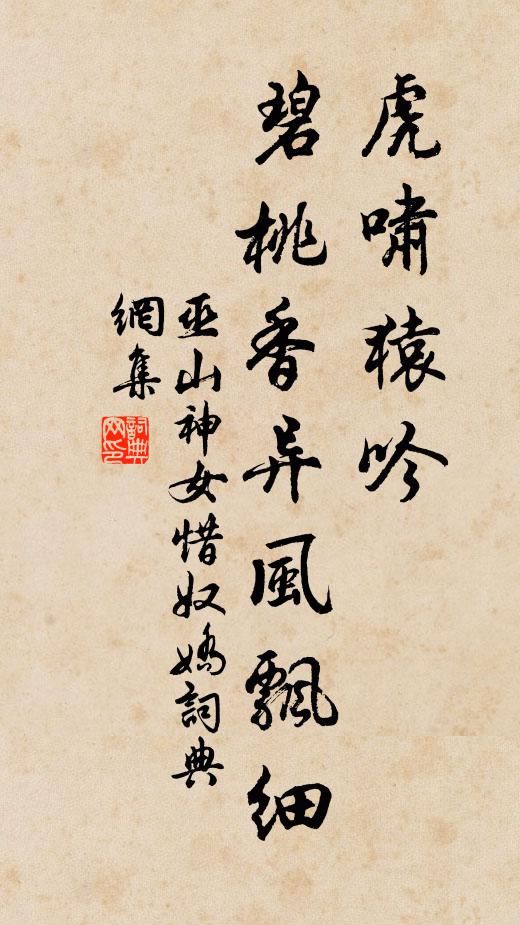 虎嘯猿吟
碧桃香异風飄細
巫山神女惜奴嬌詞典
網集
詞典網印